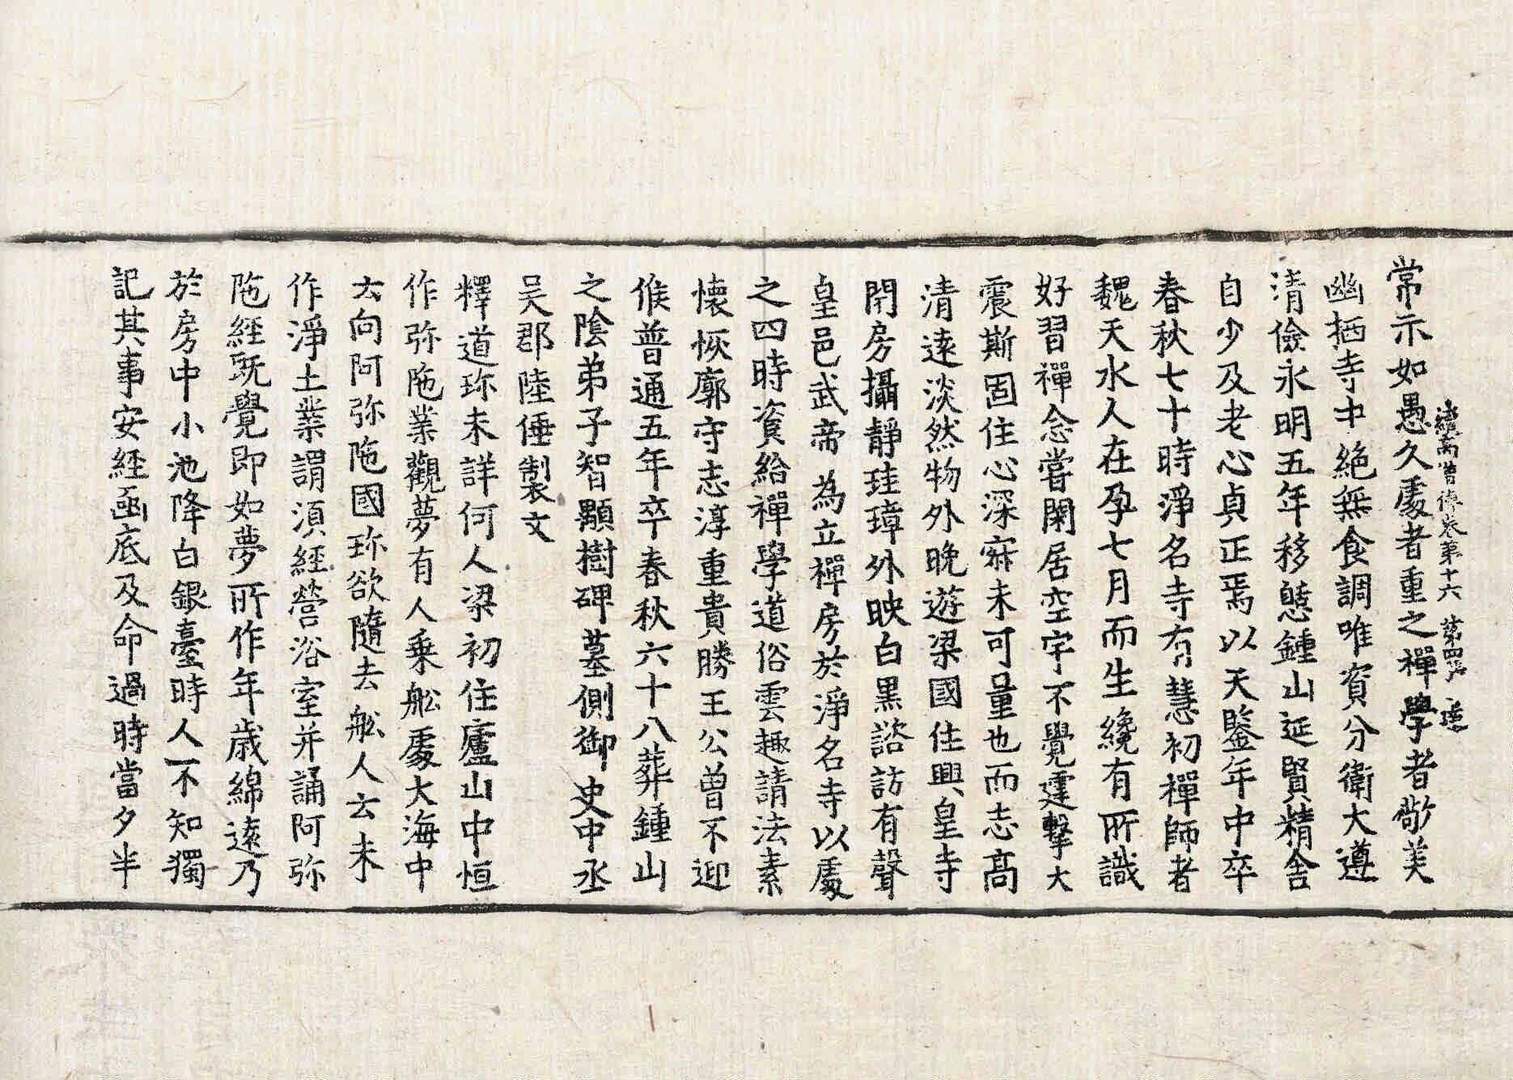 續高僧傳卷第十六 第四張 逵
常示如愚久處者重之禪學者敬美
幽栖寺中絶無食調唯資分衛大遵
清儉永明五年移憩鍾山延賢精舍
自少及老心貞正焉以天鑒年中卒
春秋七十時淨名寺有慧初禪師者
魏天水人在孕七月而生纔有所識
好習禪念嘗閑居空宇不覺霆擊大
震斯固住心深寂未可量也而志高
清遠淡然物外晚遊梁國住興皇寺
閉房攝靜珪璋外映白黑諮訪有聲
皇邑武帝為立禪房於淨名寺以處
之四時資給禪學道俗雲趣請法素
懷恢廓守志淳重貴勝王公曽不迎
候普通五年卒春秋六十八葬鍾山
之陰弟子智顒樹碑墓側御史中丞
吳郡陸倕製文
釋道珎未詳何人梁初住廬山中恒
作弥陁業觀夢有人乗舩處大海中
去向阿弥陁國珎欲隨去舩人云未
作淨土業謂須經營浴室并誦阿弥
陁經旣覺即如夢所作年歲綿遠乃
於房中小池降白銀臺時人不知獨
記其事安經函底及命過時當夕半